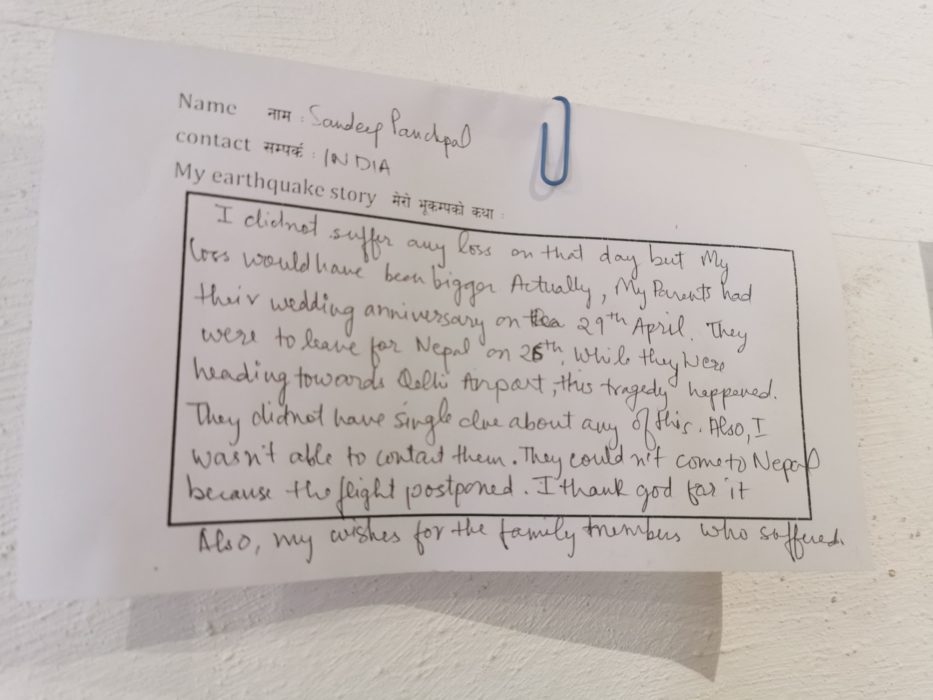 Name नाम : Sandeep Panchpal
contact सम्पर्क : INDIA
My earthquake story मेरो भूकम्पको कथा :
I didnot suffer any loss on that day but My
loss would have been bigger Actually, My Parents had
their wedding anniversary on 29th April. They
were to leave for Nepal on 25th. While they were
heading towards Delhi Airport, this tragedy happened.
They didnot have single clue about any of this. Also, I
wasn't able to contact them. They could n't come to Nepal
because the flight postponed. I thank god for it
Also, my wishes for the family members who suffered.